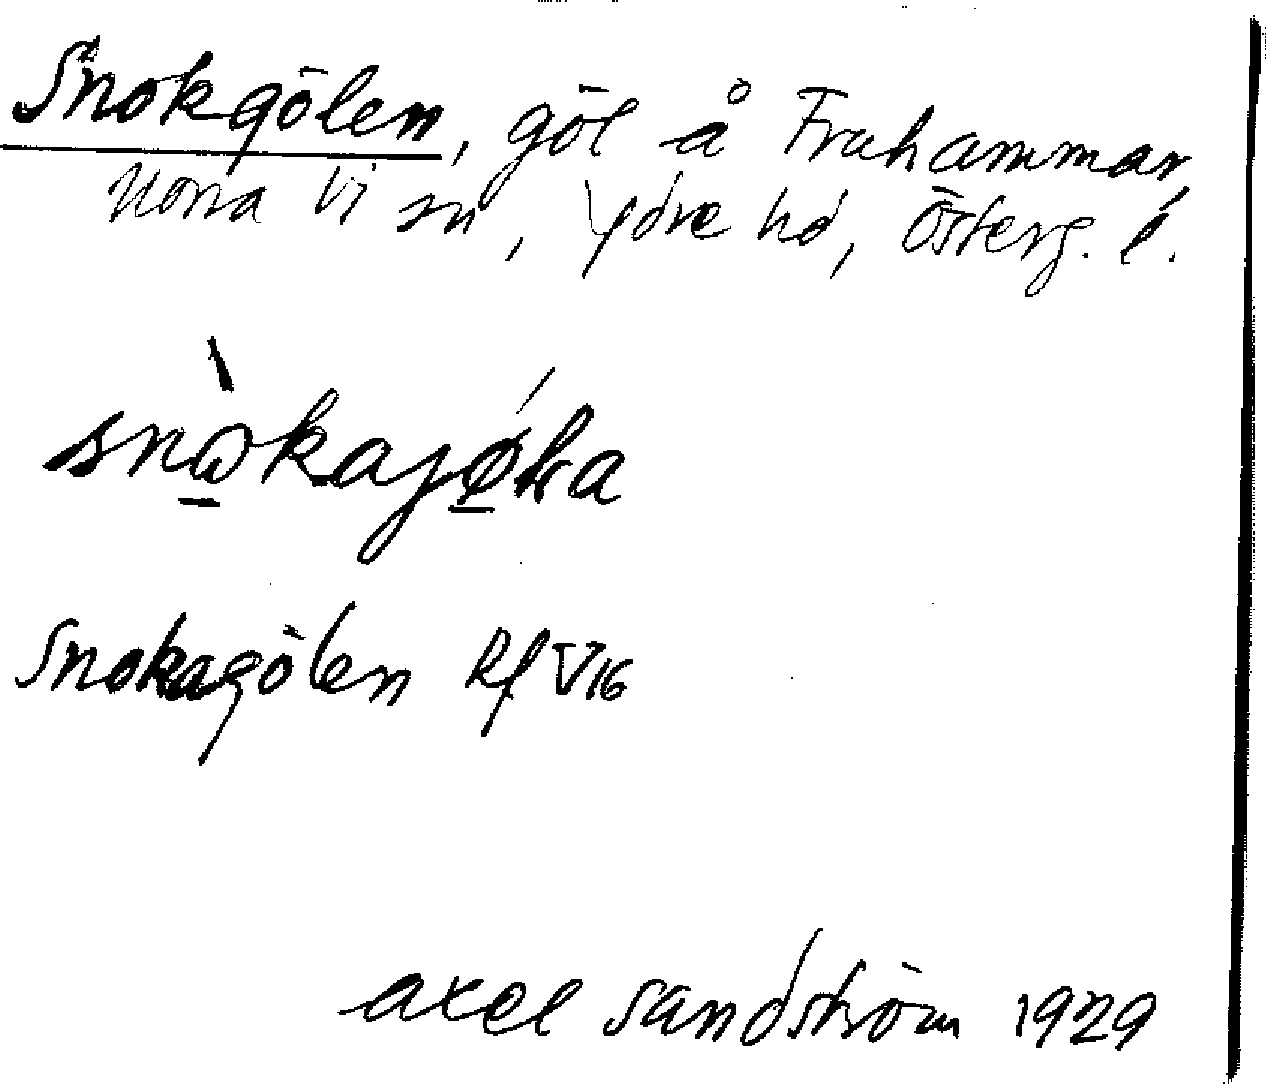 Snokgölen, göl å Fruhammar,
Norra Vi sn, Ydre hd, Österg. l.
Snokagölen Rf V16
Axel Sandström 1929